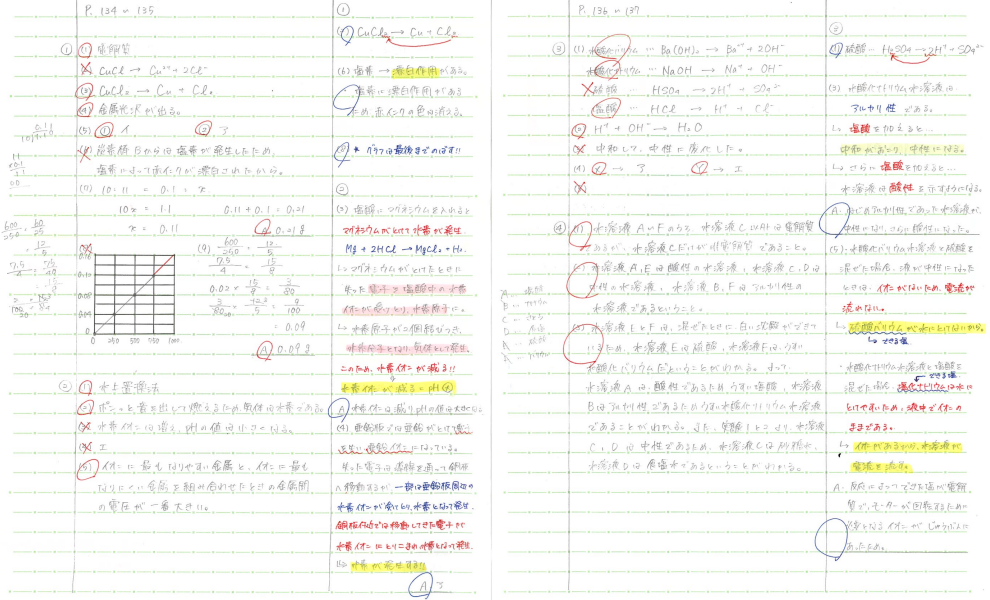 P. 134 ~ 135
① (1) 電解質
CuCl → Cu²⁺ + 2Cl⁻
(3) CuCl₂ → Cu + Cl₂
(4) 金属光沢が出る。
(5) ① イ ② ア
塩素によって赤インクが漂白されたから。
(7) 10:11 = 0.1 : x
10x = 1.1 0.11 + 0.1 = 0.21
x = 0.11
A 0.21g
(9) 600/250 = 12/5
7.5/4 = 15/8
0.02 × 15/8 = 3/80
= 0.09
A 0.09g
0 250 500 750 1000
② (1) 水上置換法
(2) ポンッと音を出して燃えるため、気体は水素である。
水素イオンは増え、pHの値は小さくなる。
エ
(5) イオンに最もなりやすい金属と、イオンに最も
なりにくい金属を組み合わせたときの金属間
の電圧が一番大きい。
①
CuCl₂ → Cu + Cl₂
(6) 塩素 → 漂白作用がある。
塩素に漂白作用があるため
赤インクの色は消える。
* グラフは最後までのばす!!
②
(3) 塩酸にマグネシウムを入れると
マグネシウムがとけて水素が発生。
Mg + 2HCl → MgCl₂ + H₂
マグネシウムがとけたときに
失った電子を塩酸中の水素
イオンが受けとり、水素原子に。
↳ 水素原子が2個結びつき、
水素分子となり、気体として発生。
このため、水素イオンが減る!!
水素イオンが減る = pH 大
A 水素イオンは減り pHの値は大きくなる
(4) 亜鉛板では亜鉛がとけて電子
を失い亜鉛イオンになっている。
失った電子は導線を通って銅板
へ移動するが、一部は亜鉛板周辺の
水素イオンが受けとり、水素となって発生。
銅板付近では移動してきた電子が
水素イオンにとりこまれ水素となって発生。
水素が発生する!!
A ア
P. 136 ~ 137
③ (1) 水酸化バリウム … Ba(OH)₂ → Ba²⁺ + 2OH⁻
水酸化ナトリウム … NaOH → Na⁺ + OH⁻
硫酸 … HSO₄ → 2H⁺ + SO₄²⁻
塩酸 … HCl → H⁺ + Cl⁻
(2) H⁺ + OH⁻ → H₂O
中和して、中性に変化した。
ア エ
④ (1) 水溶液A~Fのうち、水溶液C以外は電解質
であるが、水溶液Cだけが非電解質であること。
水溶液A, Eは酸性の水溶液、水溶液C, Dは
中性の水溶液、水溶液B, Fはアルカリ性の
水溶液であるということ。
水溶液EとFは、混ぜたときに、白い沈殿ができて
いるため、水溶液Eは硫酸、水溶液Fは、うすい
水酸化バリウムだということがわかる。よって、
水溶液Aは、酸性であるためうすい塩酸、水溶液
Bはアルカリ性であるためうすい水酸化ナトリウム水溶液
であることがわかる。また、実験1より、水溶液
C, Dは中性であるため、水溶液Cは砂糖水、
水溶液Dは食塩水であるということがわかる。
③
(1) 硫酸 … H₂SO₄ → 2H⁺ + SO₄²⁻
(3) 水酸化ナトリウム水溶液は
アルカリ性である。
↳ 塩酸を加えると…
中和がおこり、中性になる。
↳ さらに塩酸を加えると…
水溶液は酸性を示すようになる。
A. はじめアルカリ性であった水溶液が、
中性になり、さらに酸性になった。
(5) 水酸化バリウム水溶液と硫酸を
混ぜた場合、液が中性になった
ときは、イオンがないため、電流が
流れない。
↳ 硫酸バリウムが水にとけないから。
↳ できる塩
・水酸化ナトリウム水溶液と塩酸を
できる塩
混ぜた場合、塩化ナトリウムは水に
とけやすいため、液中でイオンの
ままである。
↳ イオンがあるから、水溶液が
電流を流す。
A. 反応によってできた塩が電解
質で、モーターが回転するために
必要となるイオンがじゅうぶんに
あったため。